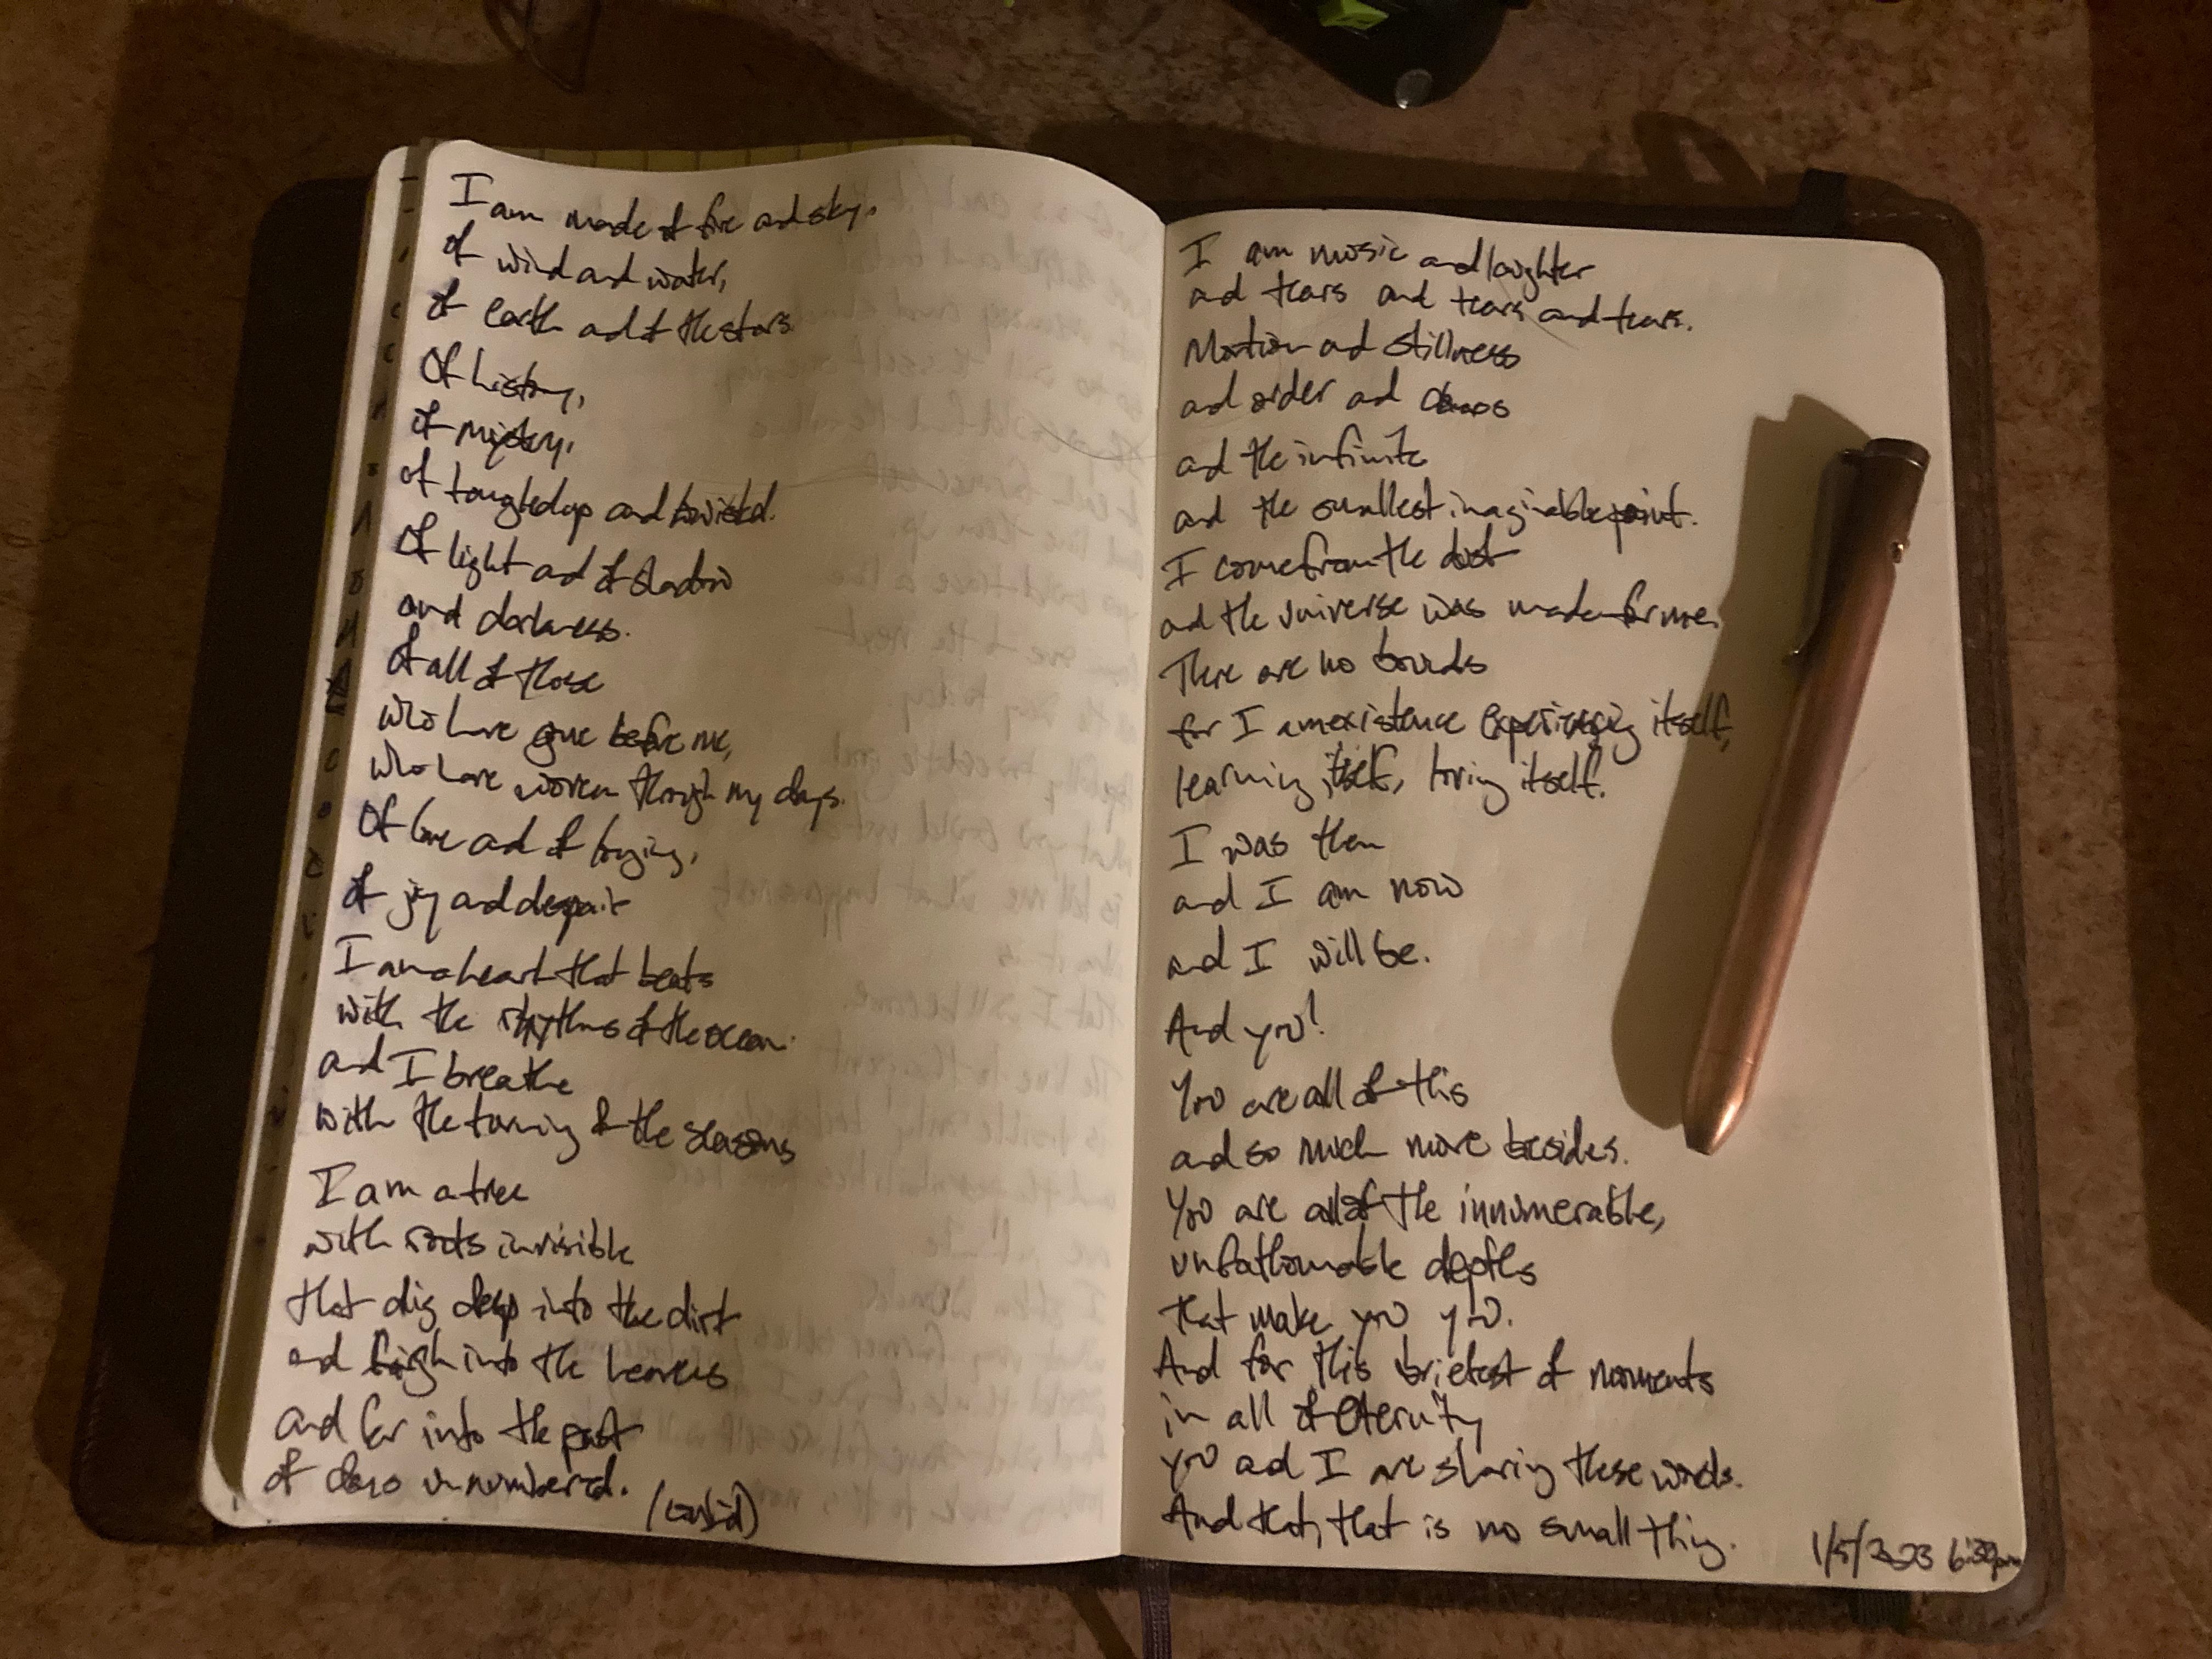 I am made of fire and sky,
of wind and water,
of earth and of the stars.
Of history,
of mystery,
of tangled up and twisted.
Of light and of shadow
and darkness.
Of all of those
who have gone before me,
who have woven through my days.
Of love and of longing,
of joy and despair
I am a heart that beats
with the rhythms of the ocean
and I breathe
with the turning of the seasons
I am a tree
with roots invisible
that dig deep into the dirt
and high into the heavens
and far into the past
of days unnumbered.
(cont'd)
I am music and laughter
and tears and tears and tears.
Motion and stillness
and order and chaos
and the infinite
and the smallest imaginable point.
I come from the dust
and the universe was made for me.
There are no bounds
for I am existence experiencing itself,
learning itself, loving itself.
I was then
and I am now
and I will be.
And you!
You are all of this
and so much more besides.
You are all of the innumerable,
unfathomable depths
that make you you.
And for this briefest of moments
in all of eternity
you and I are sharing these words.
And that, that is no small thing.
1/5/2023 6:30pm